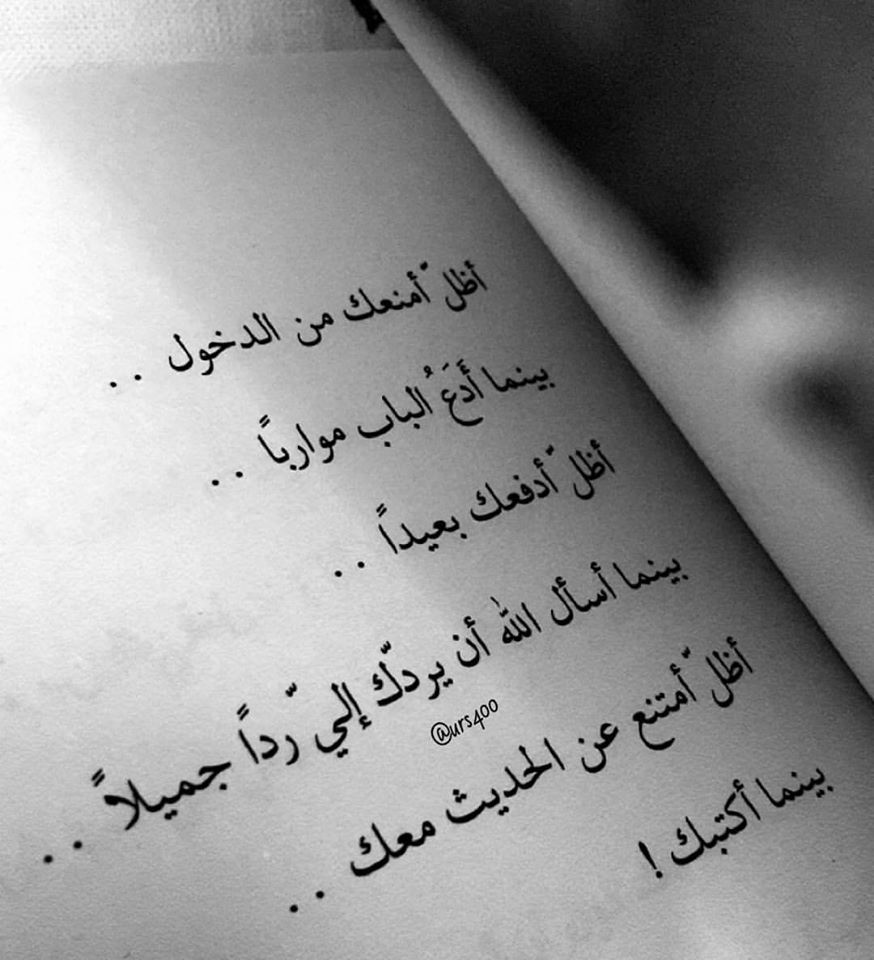 أظلّ أمنعك من الدخول ..
بينما أَدَعَُ الباب موارباً ..
أظلّ أدفعك بعيداً ..
بينما أسأل الله أن يردّك إلي رّداً جميلاً ..
@urs400
أظلّ أمتنع عن الحديث معك ..
بينما أكتبك !